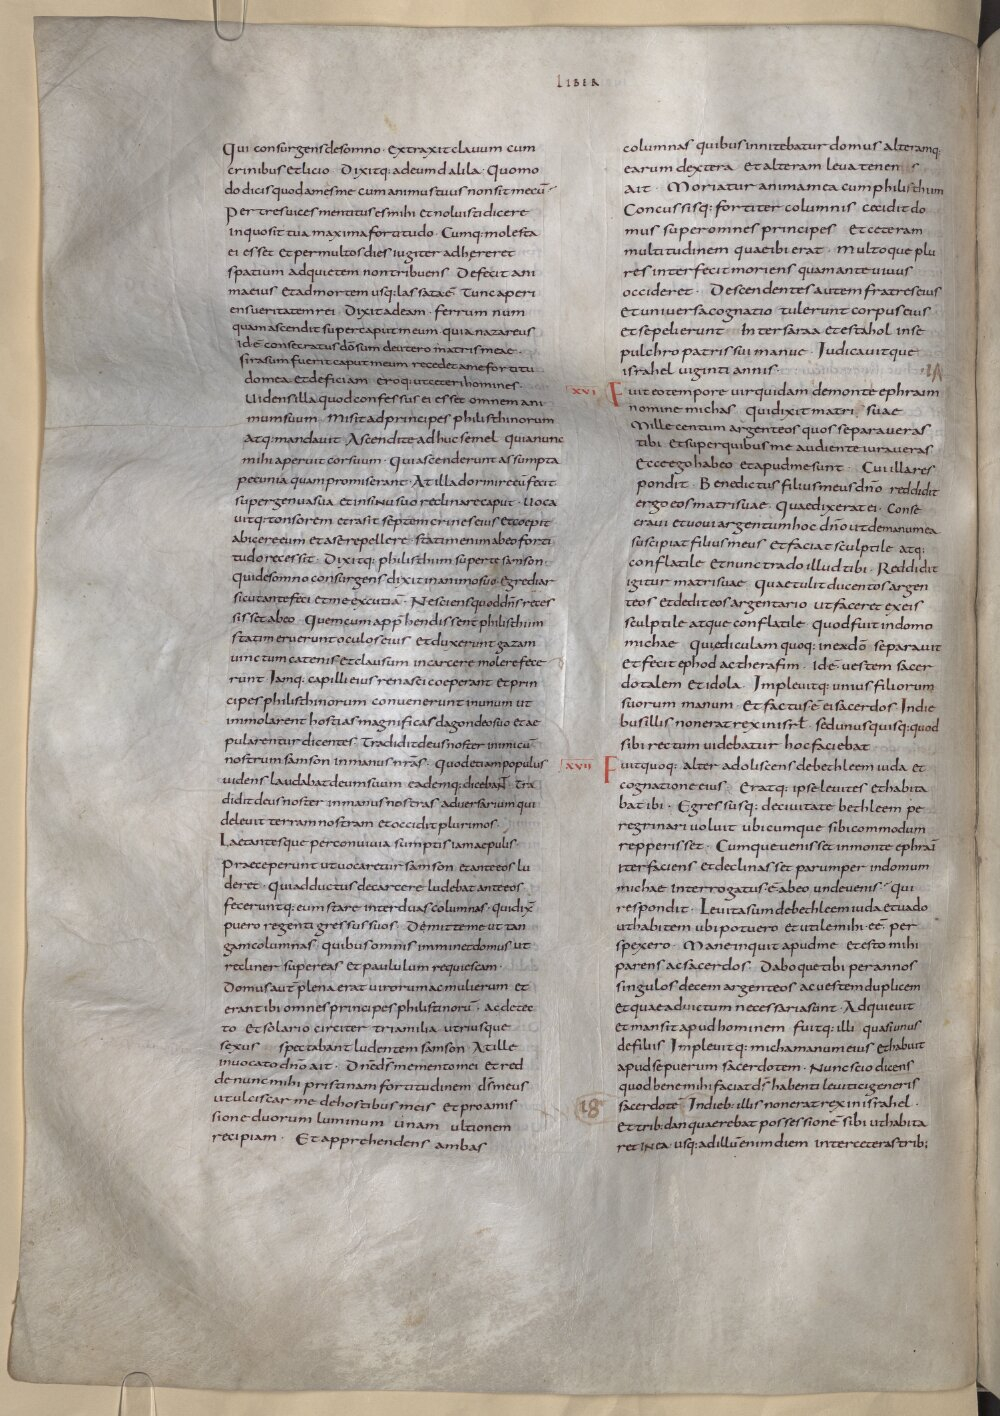 LIBER
Qui consurgens desomno · extraxit clauum cum
crinibus et licio · Dixitq: adeum dalila · Quomo
do dicis quod amesme cum animus tuus non sit mecū
Per tres uices mentitus es mihi et noluisti dicere
inquo sit tua maxima fortitudo · Cumq: molesta
ei esset et per multos dies iugiter adhereret
spatium ad quietem non tribuens Defecit ani
ma eius et ad mortem usq: lassata ē Tunc aperi
ens ueritatem rei · Dixit ad eam · ferrum num
quam ascendit super caput meum quia nazareus
id ē consecratus dō sum de utero matris meae ·
si rasum fuerit caput meum recedet a me fortitu
do mea et deficiam eroq: ut ceteri homines ·
Uidens illa quod confessus ei esset omnem ani
mum suum · misit ad principes philisthinorum
atq: mandauit Ascendite adhuc semel quia nunc
mihi aperuit cor suum · Qui ascenderunt assumpta
pecunia quam promiserant · At illa dormire eu fecit
super genua sua et in sinu suo reclinare caput · Uoca
uitq: tonsorem et rasit septem crines eius et coepit
abicere eum et a se repellere · statim enim ab eo forti
tudo recessit · Dixitq: philisthiim super te samson ·
Qui desomno consurgens dixit in animo suo · egrediar
sicut ante feci et me excutiā · Nesciens quod dn̄s reces
sisset ab eo · Quem cum app̄hendissent philisthiim
statim eruerunt oculos eius et duxerunt gazam
uinctum catenis et clausum in carcere molere fece
runt Iamq: capilli eius renasci coeperant et prin
cipes philisthinorum convenerunt in unum ut
immolarent hostias magnificas dagon deo suo et ae
pularentur dicentes Tradidit deus noster inimicū
nostrum samson in manus nr̄as · Quod etiam populus
uidens laudabat deum suum eademq: dicebant Tra
didit deus noster in manus nostras aduersarium qui
deleuit terram nostram et occidit plurimos ·
Laetantesque per convivia sumptis iam aepulis ·
Praeceperunt ut uocaretur samson et ante eos lu
deret · Qui adductus de carcere ludebat ante eos
feceruntq: eum stare inter duas columnas · qui dix̄
puero regenti gressus suos Demitte me ut tan
gam columnas quibus omnis imminet domus ut
recliner super eas et paululum requiescam ·
Domus aut̄ plena erat uirorum ac mulierum et
erant ibi omnes principes philistinorū · ac de tec
to Et solario circiter tria milia utriusque
sexus spectabant ludentem samson At ille
invocato dn̄o ait · Dn̄e ds̄ memento mei et red
de nunc mihi pristinam fortitudinem ds̄ meus
ut ulciscar me de hostibus meis et pro amis
sione duorum luminum unam ultionem
recipiam · Et apprehendens ambas
columnas quibus innitebatur domus alteramq:
earum dextera et alteram leua tenens
ait Moriatur anima mea cum philisthiim
Concussisq: fortiter columnis cecidit do
mus super omnes principes et ceteram
multitudinem quae ibi erat · multoque plu
res interfecit moriens quam ante uiuus
occideret · Descendentes autem fratres eius
et uniuersa cognatio tulerunt corpus eius
et sepelierunt Inter saraa et esthahol in se
pulchro patris sui manue · Iudicauitque
israhel uiginti annis ·
XVI Fuit eo tempore uir quidam de monte ephraim
nomine michas qui dixit matri suae
Mille centum argenteos quos separaueras
tibi et super quibus me audiente iuraueras
Ecce ego habeo et apud me sunt · Cui illa res
pondit · Benedictus filius meus dn̄o reddidit
ergo eos matri suae quae dixerat ei · Conse
craui et uoui argentum hoc dn̄o ut de manu mea
suscipiat filius meus et faciat sculptile atq:
conflatile et nunc trado illud tibi · Reddidit
igitur matri suae quae tulit ducentos argen
teos et dedit eos argentario ut faceret ex eis
sculptile atque conflatile quod fuit in domo
michae Qui ediculam quoq: in ea dō separauit
et fecit ephod ac therafim · id ē uestem sacer
dotalem et idola · Impleuitq: unius filiorum
suorum manum et factus ē ei sacerdos In die
bus illis non erat rex in isrl̄ sed unusquisq: quod
sibi rectum uidebatur hoc faciebat
XVII Fuit quoq: alter adoliscens de bethleem iuda et
cognatione eius eratq: ipse leuites et habita
bat ibi · Egressusq: de ciuitate bethleem pe
regrinari uoluit ubicumque sibi commodum
repperisset · Cumque uenisset in monte ephraī
iter faciens et declinasset parumper in domum
michae interrogatus ē ab eo unde uenis qui
respondit · Leuita sum de bethleem iuda et uado
ut habitem ubi potuero et utile mihi · eē per
spexero · Mane inquit apud me et esto mihi
parens ac sacerdos Dabo que tibi per annos
singulos decem argenteos ac uestem duplicem
et quae ad uictum necessaria sunt · Adquieuit
et mansit apud hominem fuitq: illi quasi unus
de filiis Impleuitq: micha manum eius et habuit
apud se puerum sacerdotem · Nunc scio dicens
quod bene mihi faciat ds̄ habenti leuitici generis
18 sacerdotē In dieb: illis non erat rex in israhel ·
Et trib: dan quaerebat possessionē sibi ut habita
ret IN ea usq: ad illū enim diem inter ceteras trib;